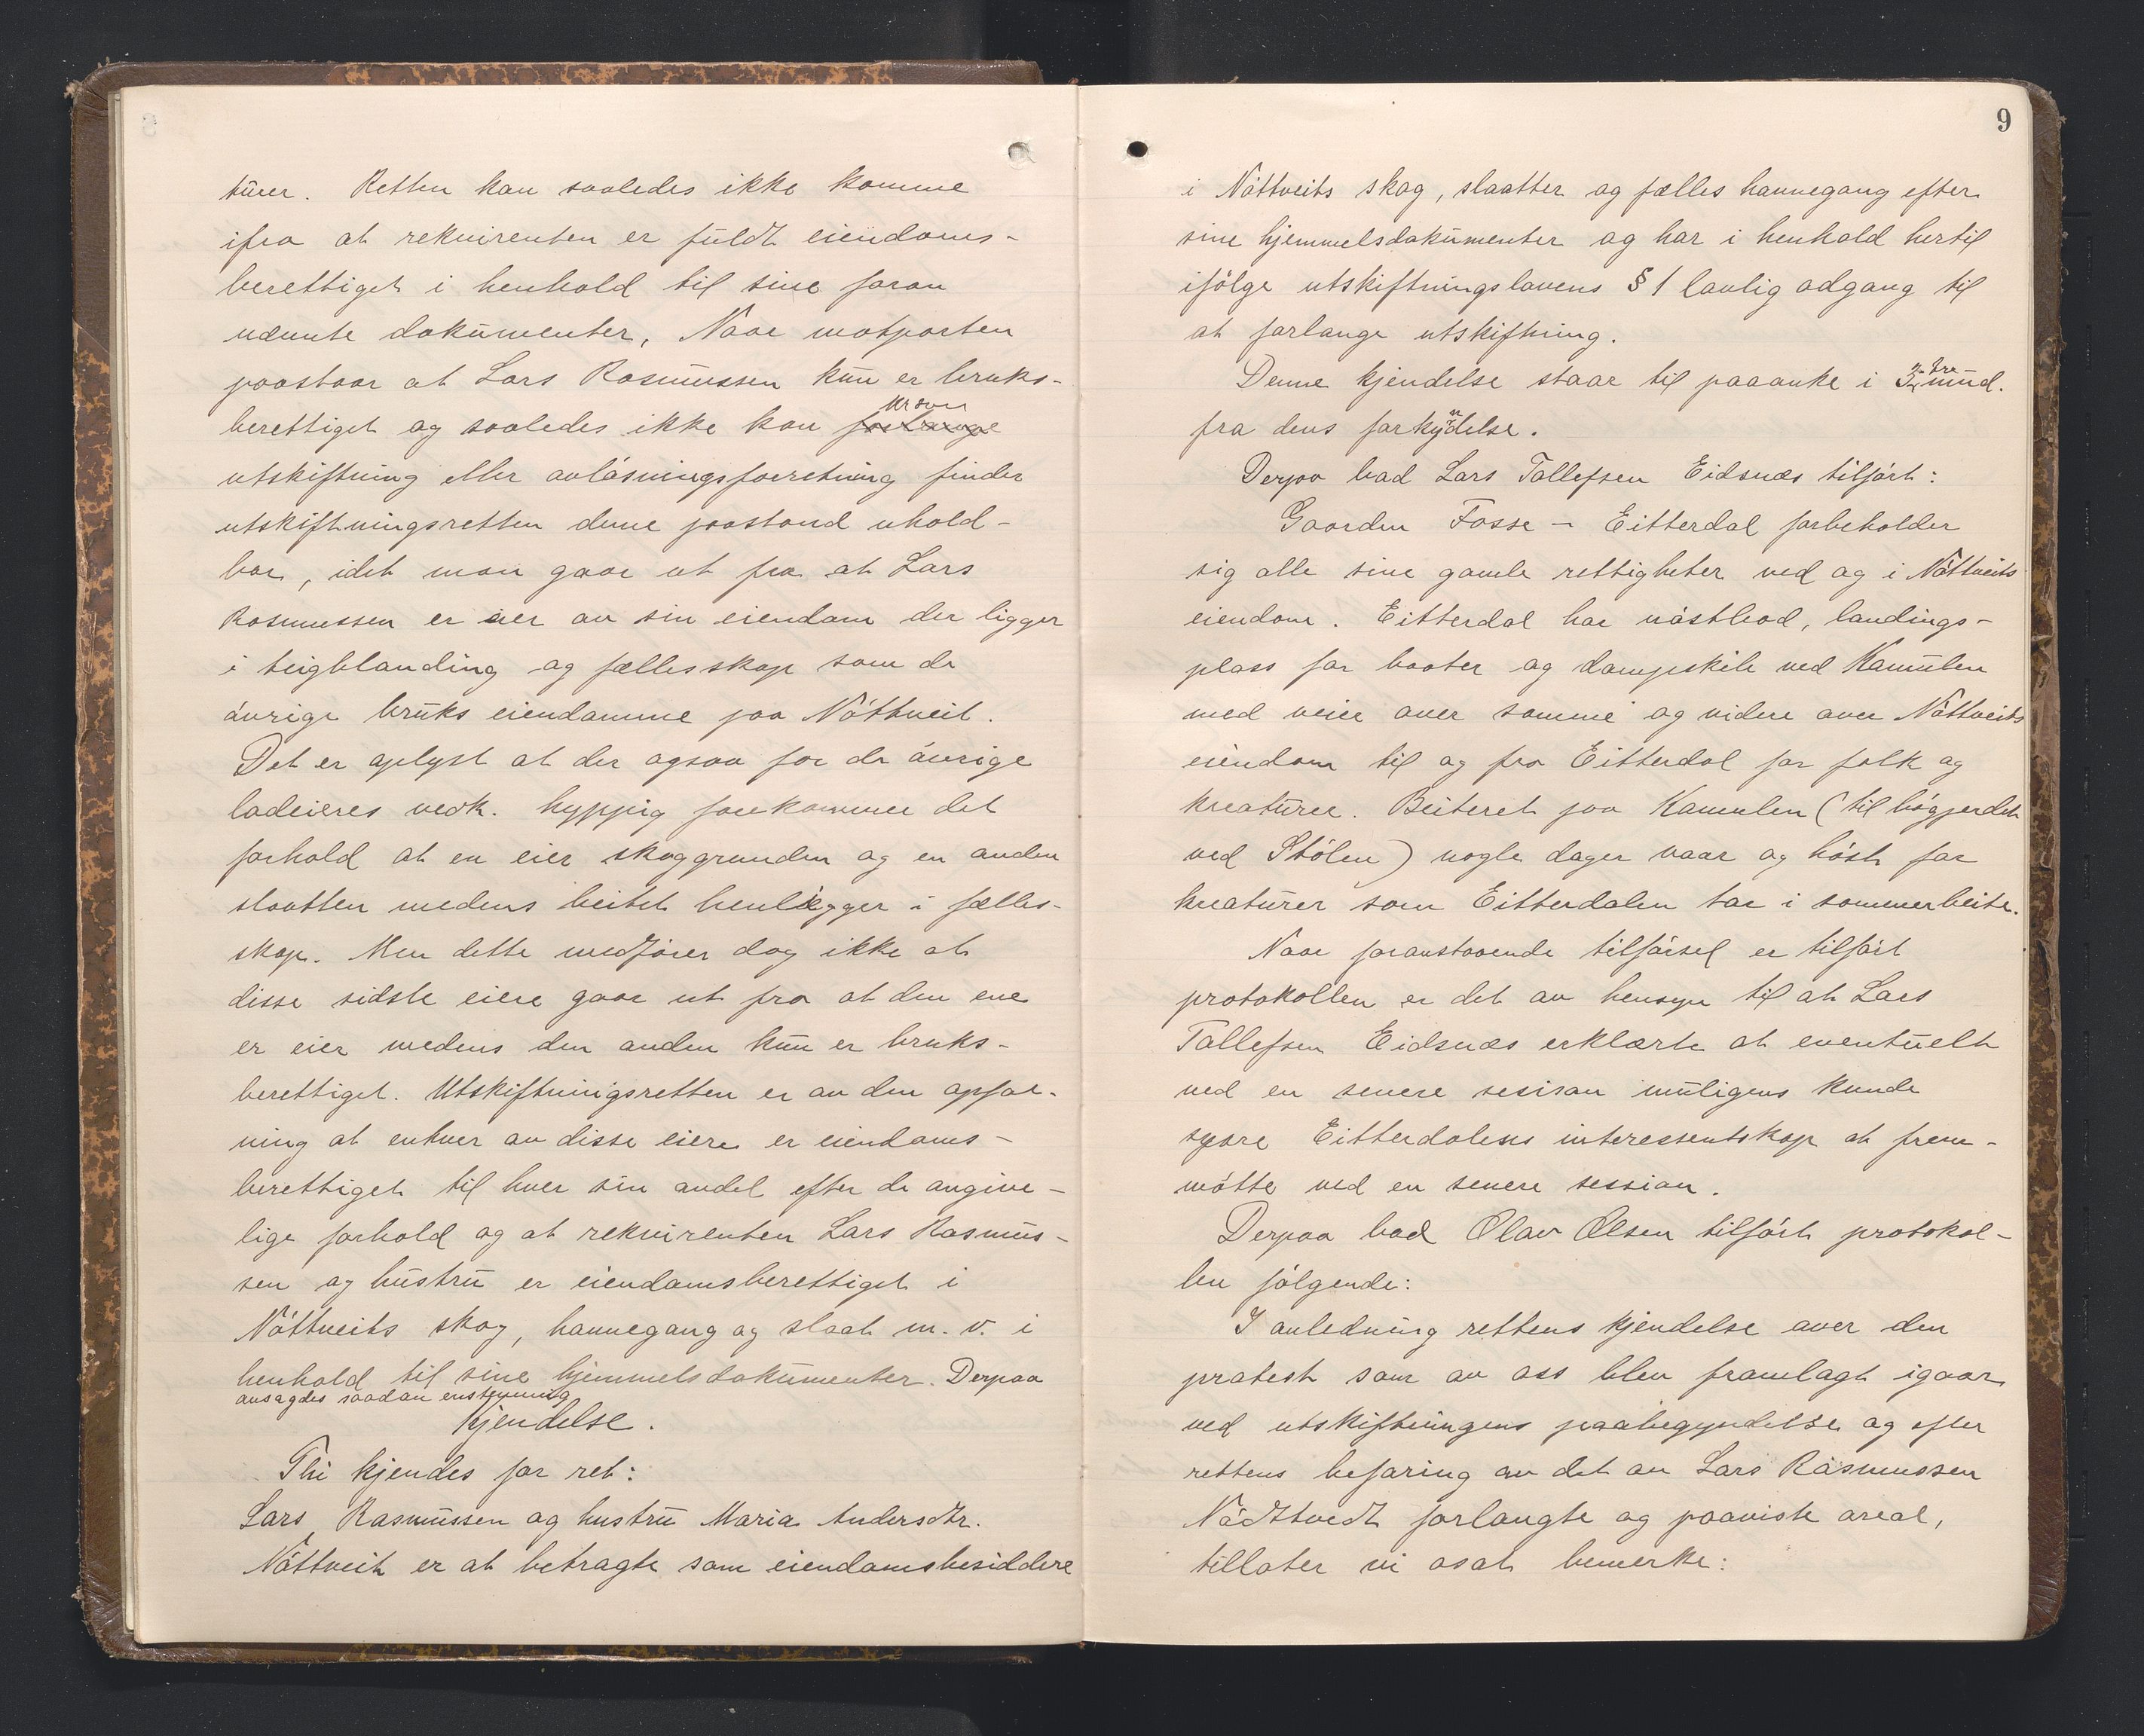 türer. Retten kan saaledes ikke komme
ifra at rekvirenten er fuldt eiendoms-
berettiget i henhold til sine foran
nævnte dokumenter, Naar motparten
paastaar at Lars Rasmussen kun er bruks-
berettiget og saaledes ikke kan forlange
utskiftning eller avløsningsforretning finder
utskiftningsretten dene paastand uhold-
bar, idet man gaar ut fra at Lars
Rasmussen er eier av sin eiendom der ligger
i teigblanding og fællesskap som de
øvrige bruks eiendomme paa Nøttveit.
Det er oplyst at der ogsaa for de øvrige
lodeieres vedk. hyppig forekommer det
forhold at en eier skoggrunden og en anden
slaatten medens beitet henligger i fælles-
skap. Men dette medfører dog ikke at
disse sidste eiere gaar ut fra at den ene
er eier medens den anden kun er bruks-
berettiget. Utskiftningsretten er av den opfat-
ning at enhver av disse eiere er eiendoms-
berettiget til hver sin andel efter de angive-
lige forhold og at rekvirenten Lars Rasmus-
sen og hustru er eiendomsberettiget i
Nøttveits skog, havnegang og slaat m. v. i
henhold til sine hjemmelsdokumenter. Derpaa
avsagdes saadan enstemmig
Kjendelse.
Thi kjendes for ret:
Lars Rasmussen og hustru Maria Andersdtr.
Nøttveit er at betragte som eiendomsbesiddere
9
i Nøttveits skog, slaatter og fælles havnegang efter
sine hjemmelsdokumenter og har i henhold hertil
ifølge utskiftningslovens § 1 lovlig adgang til
at forlange utskiftning.
Denne kjendelse staar til paaanke i 3 tre mnd.
fra dens forkyndelse.
Derpaa bad Lars Tollefsen Eidsnæs tilført:
Gaarden Fosse - Eitterdal forbeholder
sig alle sine gamle rettigheter ved og i Nøttveits
eiendom. Eitterdal har nøstbod, landings-
plass for baater og dampskib ved Kamulen
med veier over samme og videre over Nøttveits
eiendom til og fra Eitterdal for folk og
kreaturer. Beiteret paa Kamulen (til bøgjerdet
ved Stølen) nogle dager vaar og høst for
kreaturer som Eitterdalen tar i sommerbeite.
Naar foranstaaende tilførsel er tilført
protokollen er det av hensyn til at Lars
Tollefsen Eidsnæs erklærte at eventuelt
ved en senere sesison muligens kunde
spare Eitterdalens interessentskap at frem-
møtte ved en senere session.
Derpaa bad Olav Olsen tilført protokol-
len følgende:
I anledning rettens kjendelse over den
protest som av oss blev framlagt igaar
ved utskiftningens paabegyndelse og efter
rettens befaring av det av Lars Rasmussen
Nødtvedt forlangte og paaviste areal,
tillater vi osat bemerke: